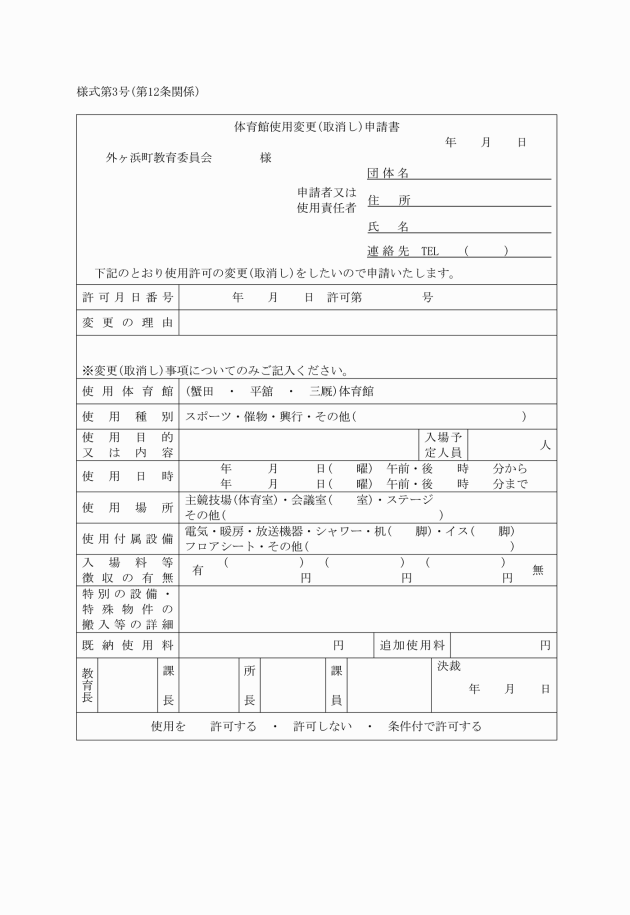 様式第3号(第12条関係)
体育館使用変更(取消し)申請書
年　　月　　日
外ヶ浜町教育委員会　　　　様
団体名
申請者又は
使用責任者
住　所
氏　名
連絡先　TEL　　(　　　)
下記のとおり使用許可の変更(取消し)をしたいので申請いたします。
許可月日番号　　　　年　　月　　日　許可第　　　　　号
変更の理由
※変更(取消し)事項についてのみご記入ください。
使用体育館　(蟹田　・　平舘　・　三厩)体育館
使用種別　スポーツ・催物・興行・その他(　　　　　　　　　　　　　　)
使用目的
又は内容
入場予
定人員
人
使用日時
年　　　月　　　日(　　曜)　午前・後　　時　　分から
年　　　月　　　日(　　曜)　午前・後　　時　　分まで
使用場所
主競技場(体育室)・会議室(　　室)・ステージ
その他(　　　　　　　　　　　　　　　　　　)
使用付属設備
電気・暖房・放送機器・シャワー・机(　　脚)・イス(　　脚)
フロアシート・その他(　　　　　　　　　　　　　　　　　)
入場料等
徴収の有無
有　(　　　　　　)　(　　　　　　)　(　　　　　　)　無
円　　　　　　　円　　　　　　　円
特別の設備・
特殊物件の
搬入等の詳細
既納使用料　　　　　　　　円　追加使用料　　　　　　　円
教育長　課長　所長　課員　決裁
年　　月　　日
使用を　　許可する　・　許可しない　・　条件付で許可する